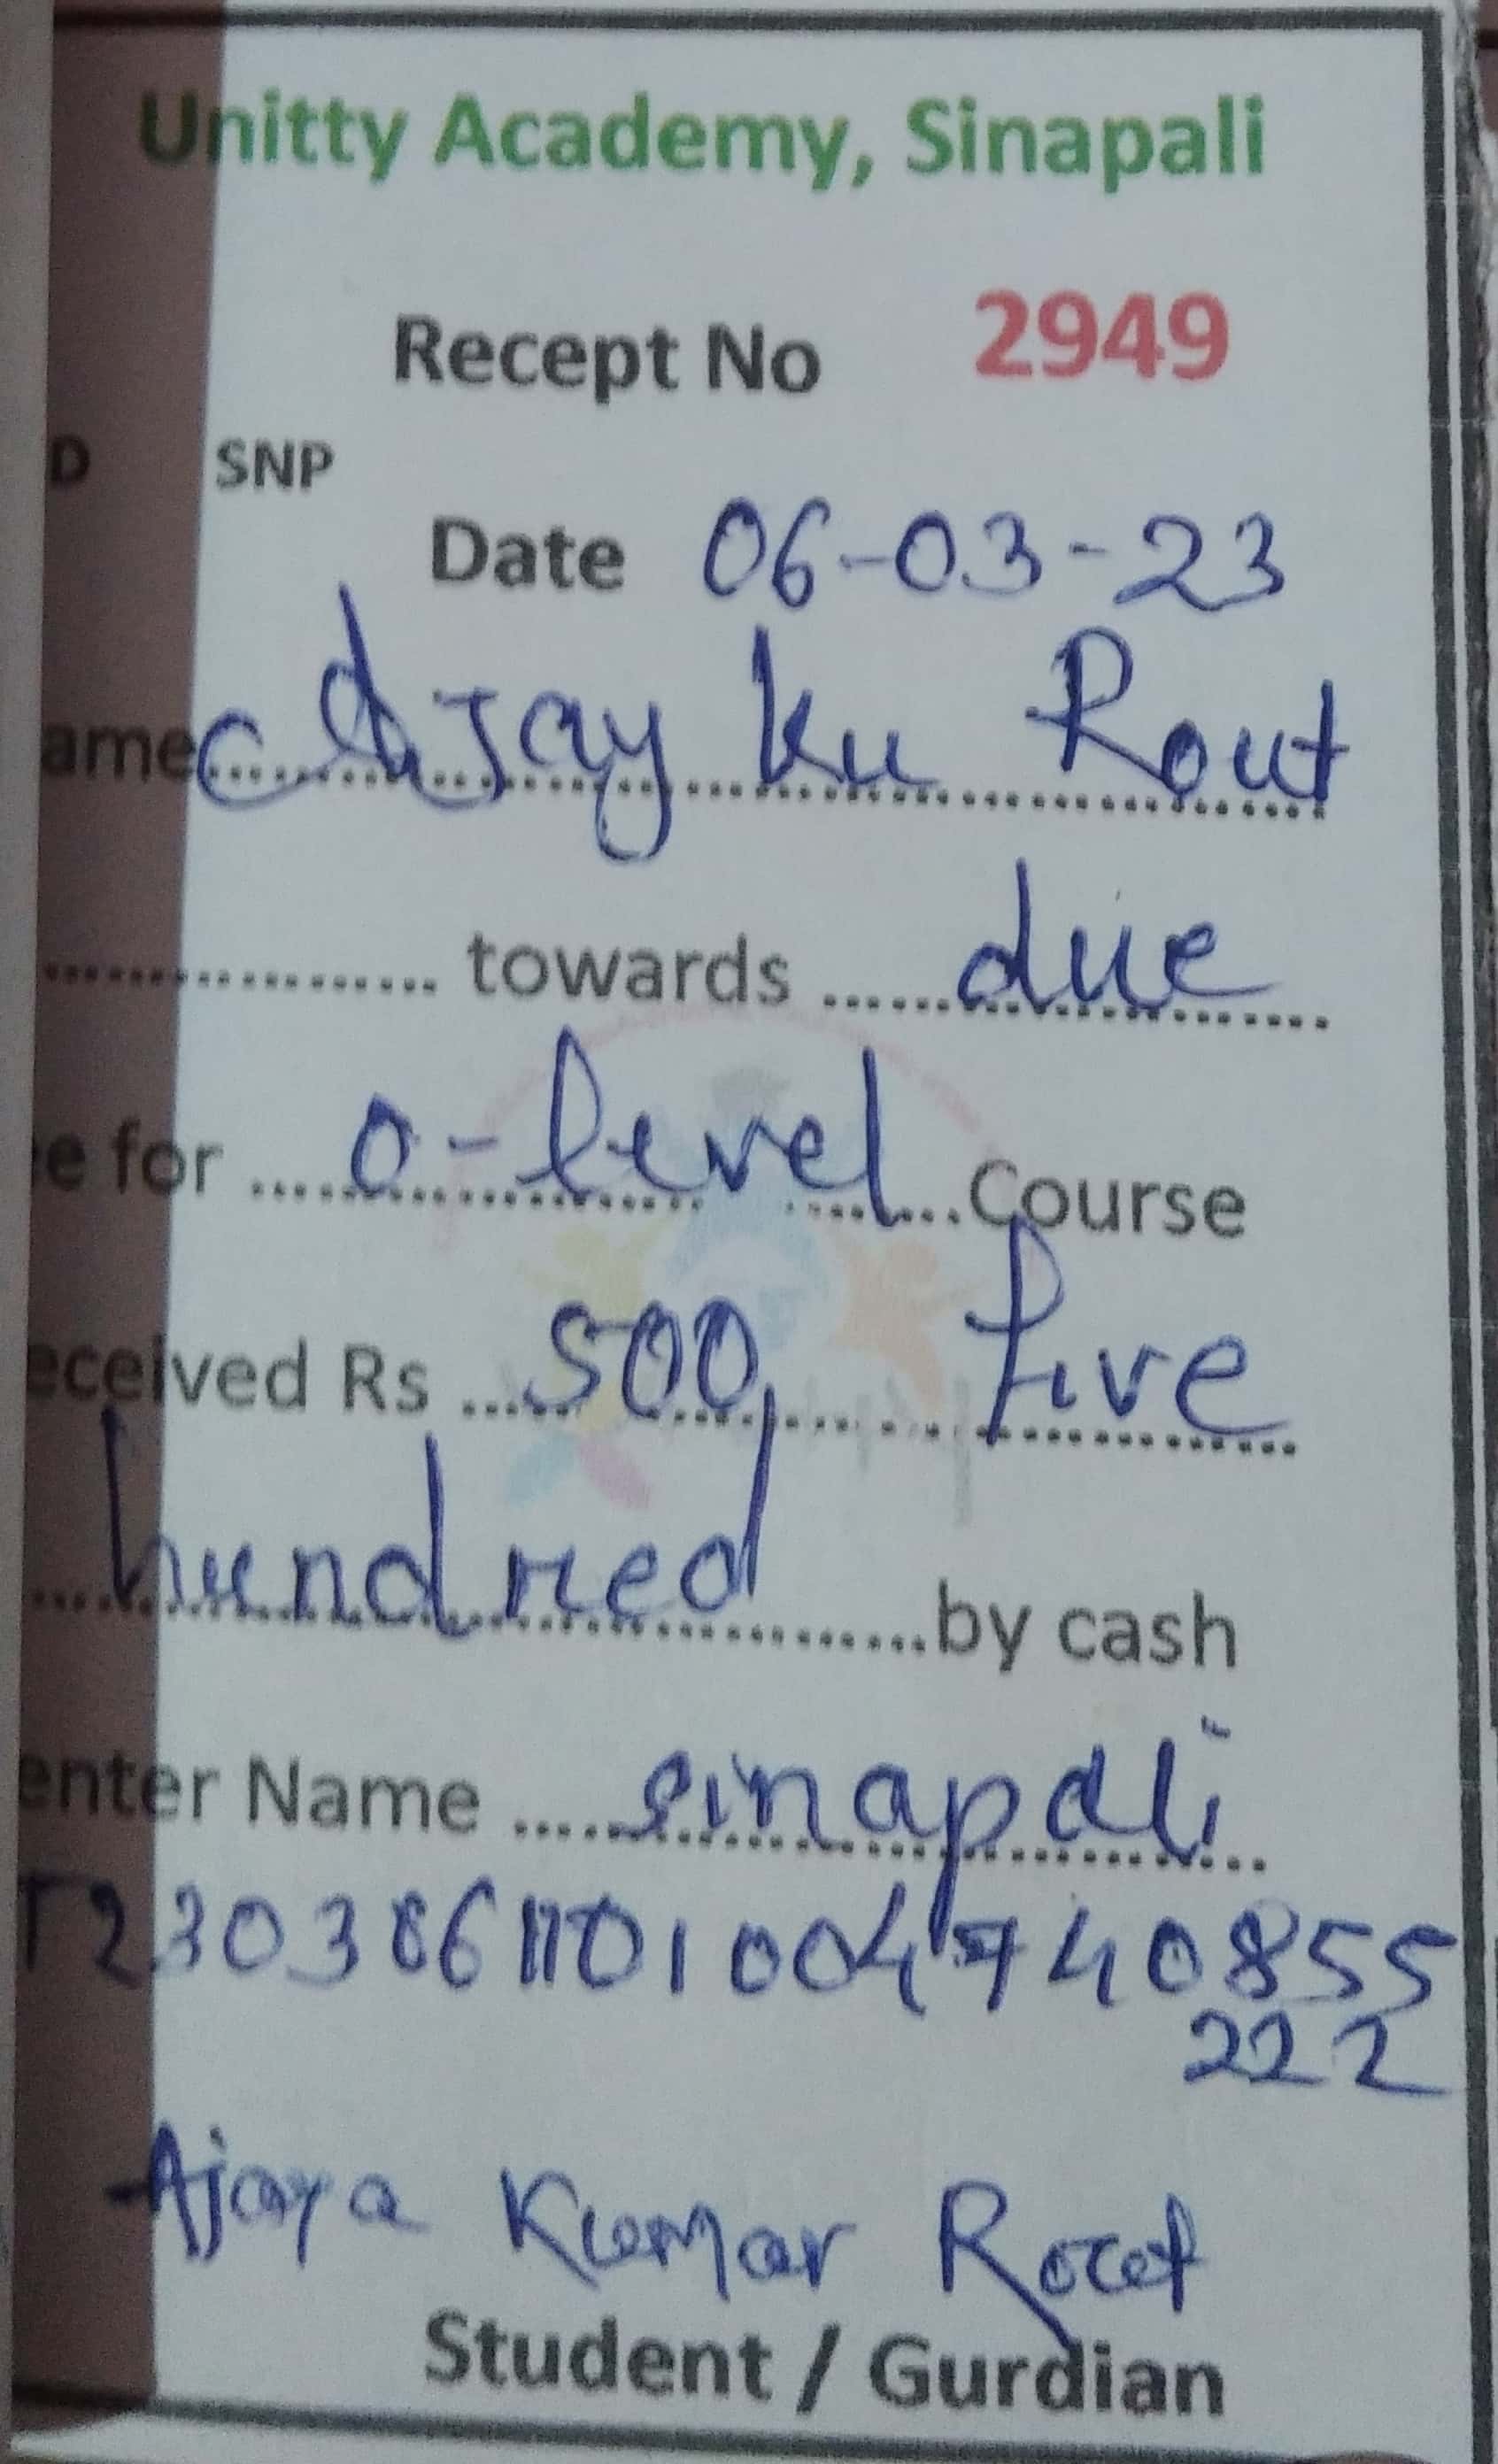 Unitty Academy, Sinapali
Recept No 2949
D SNP
Date 06-03-23
ame Ajay Ku Rout
towards due
e for o-level Course
eceived Rs 500, five
hundred by cash
enter Name sinapali
222
Ajaya Kumar Rout
Student / Gurdian